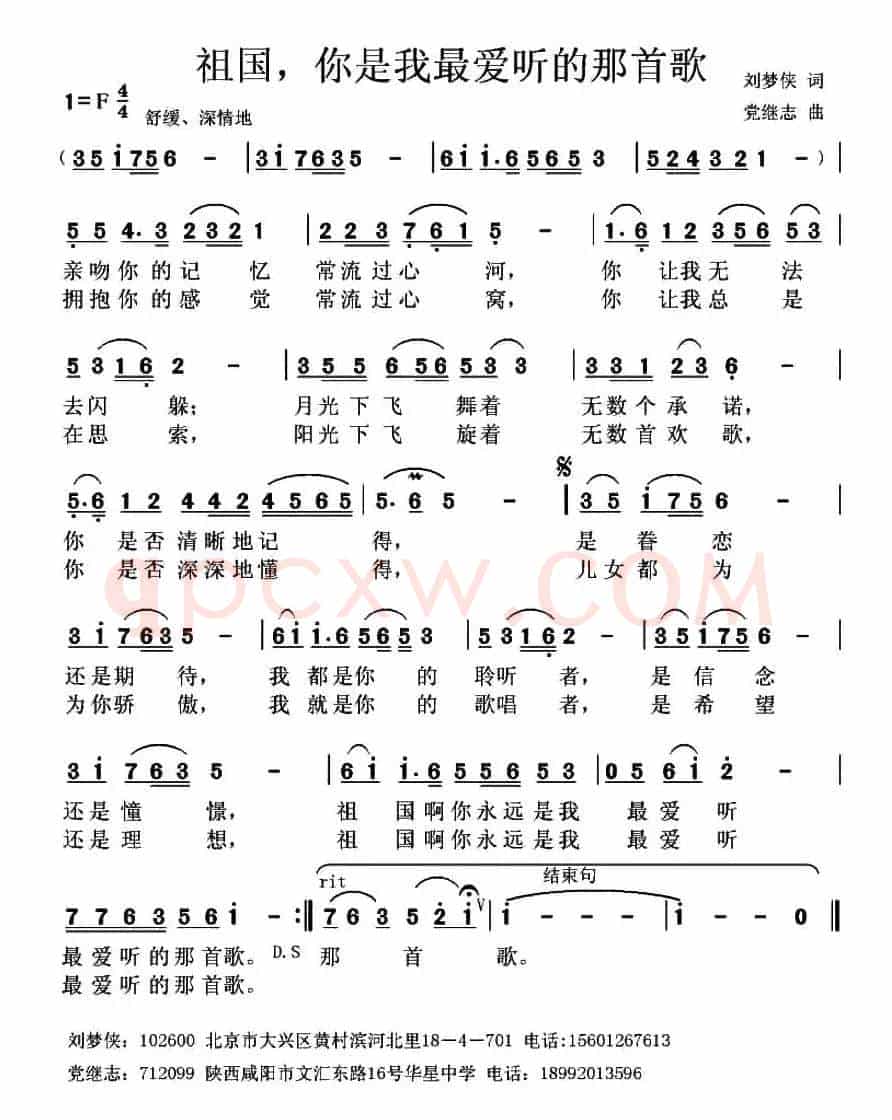 祖国，你是我最爱听的那首歌
刘梦侠 词
1=F 4/4
党继志 曲
舒缓、深情地
( 3 5 i 7 5 6 － | 3 i 7 6 3 5 － | 6 i i. 6 5 6 5 3 | 5 2 4 3 2 1 － ) |
5 5 4. 3 2 3 2 1 | 2 2 3 7 6 1 5 － | 1. 6 1 2 3 5 6 5 3 |
亲吻你的记忆 常流过心河， 你让我无法
拥抱你的感觉 常流过心窝， 你让我总是
5 3 1 6 2 － | 3 5 5 6 5 6 5 3 3 | 3 3 1 2 3 6 － |
去闪躲； 月光下飞舞着 无数个承诺，
在思索， 阳光下飞旋着 无数首欢歌，
5. 6 1 2 4 4 2 4 5 6 5 | 5. 6 5 － | 3 5 i 7 5 6 － |
你是否清晰地记得， 是眷恋
你是否深深地懂得， 儿女都为
qpcxw.COM
3 i 7 6 3 5 － | 6 i i. 6 5 6 5 3 | 5 3 1 6 2 － | 3 5 i 7 5 6 － |
还是期待， 我都是你的聆听者， 是信念
为你骄傲， 我就是你的歌唱者， 是希望
3 i 7 6 3 5 － | 6 i i. 6 5 5 6 5 3 | 0 5 6 i 2 － |
还是憧憬， 祖国啊你永远是我 最爱听
还是理想， 祖国啊你永远是我 最爱听
rit 结束句
7 7 6 3 5 6 i － :|| 7 6 3 5 2 i V | i － － － | i － － 0 ||
最爱听的那首歌。 D.S 那首歌。
最爱听的那首歌。
刘梦侠：102600 北京市大兴区黄村滨河北里18－4－701 电话:15601267613
党继志：712099 陕西咸阳市文汇东路16号华星中学 电话：18992013596